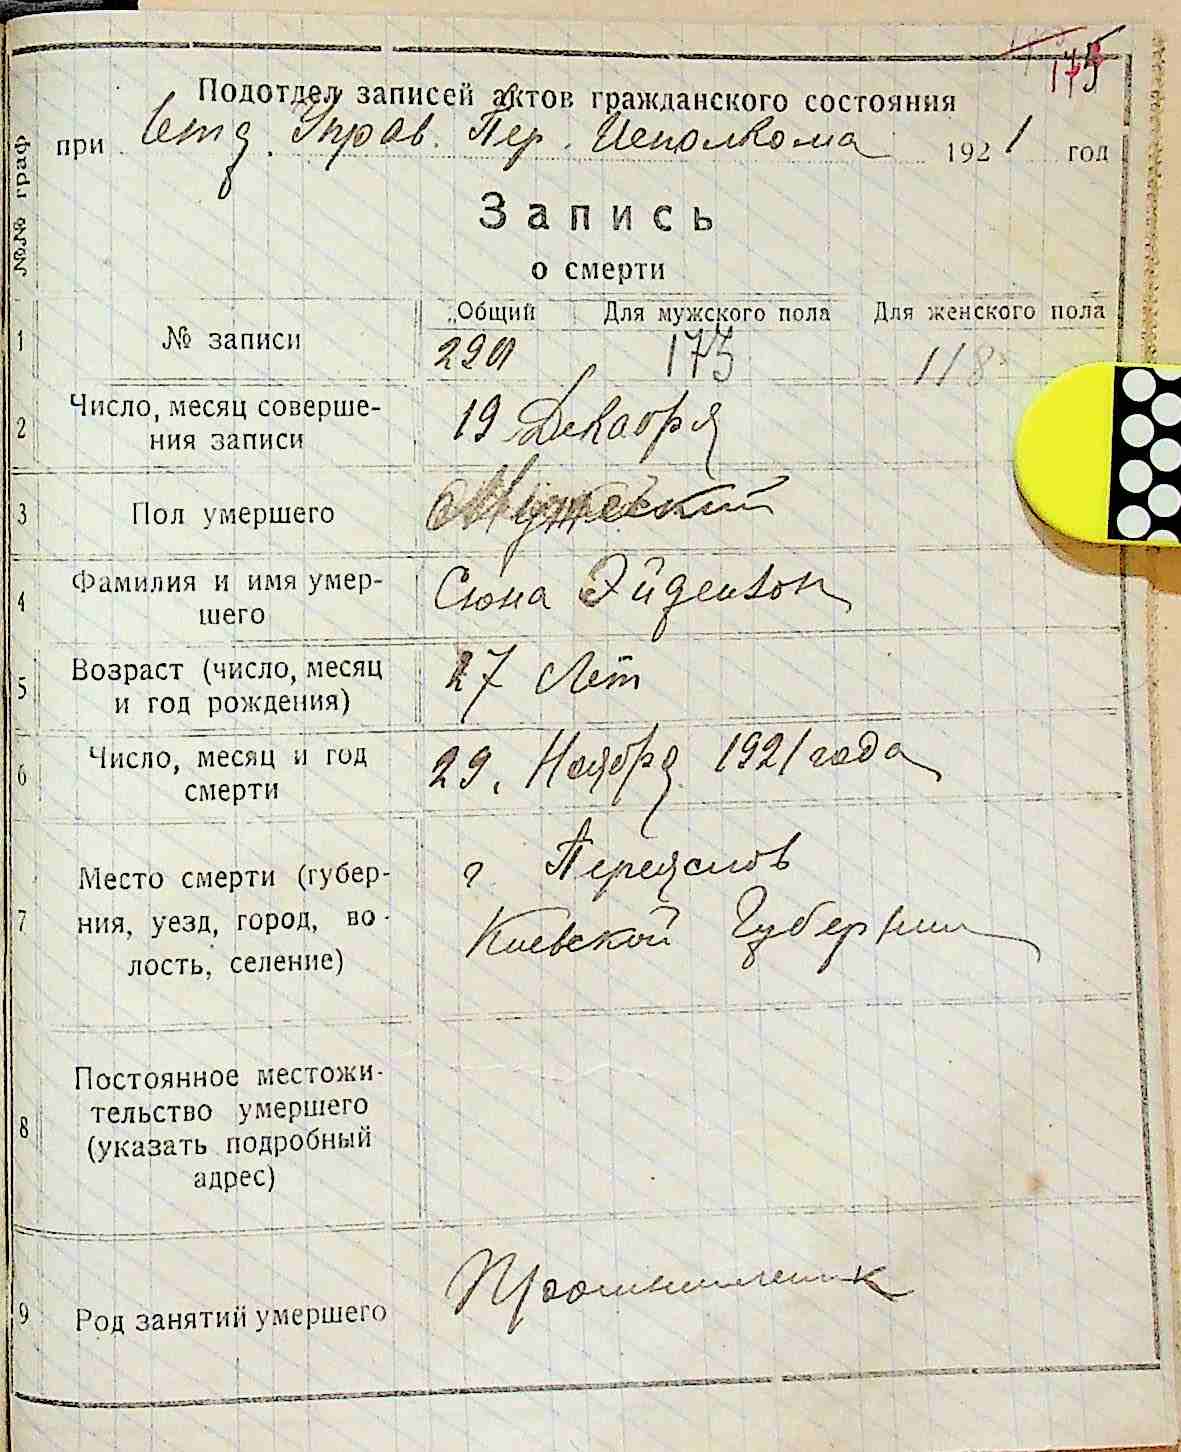 175
Подотдел записей актов гражданского состояния
при Отд. Управ. Пер. Исполкома 1921 год
№№ граф
Запись
о смерти
Общий Для мужского пола Для женского пола
1 № записи 173 118
2 Число, месяц соверше-
ния записи 19 Декабря
3 Пол умершего Мужеский
4 Фамилия и имя умер-
шего Сюна Эйдензон
5 Возраст (число, месяц
и год рождения) 27 Лет
6 Число, месяц и год
смерти 29. Ноября 1921 года
7 Место смерти (губер-
ния, уезд, город, во-
лость, селение)
г Переяслов
Киевской Губернии
8 Постоянное местожи-
тельство умершего
(указать подробный
адрес)
9 Род занятий умершего